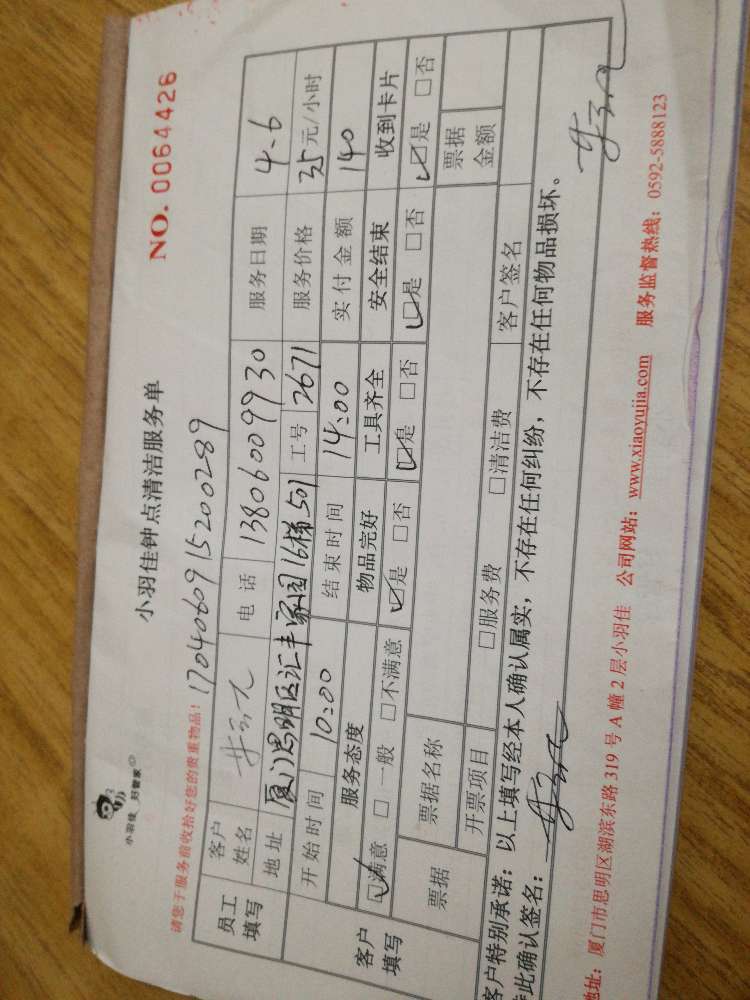 小羽佳 好管家
小羽佳钟点清洁服务单
NO. 0064426
请您于服务前收拾好您的贵重物品! 1704060915200289
员工填写 客户姓名 电话 13806009930 服务日期 4.6
地址 厦门思明区汇丰家园16梯501 工号 2671 服务价格 35元/小时
开始时间 10:00 结束时间 14:00 实付金额 140
客户填写 服务态度 物品完好 工具齐全 安全结束 收到卡片
☑满意 □一般 □不满意 ☑是 □否 ☑是 □否 ☑是 □否 ☑是 □否
票据 票据名称 票据金额
开票项目 □服务费 □清洁费 客户签名
客户特别承诺:以上填写经本人确认属实,不存在任何纠纷,不存在任何物品损坏。
特此确认签名:
地址:厦门市思明区湖滨东路319号A幢2层小羽佳 公司网站:www.xiaoyujia.com 服务监督热线:0592-5888123